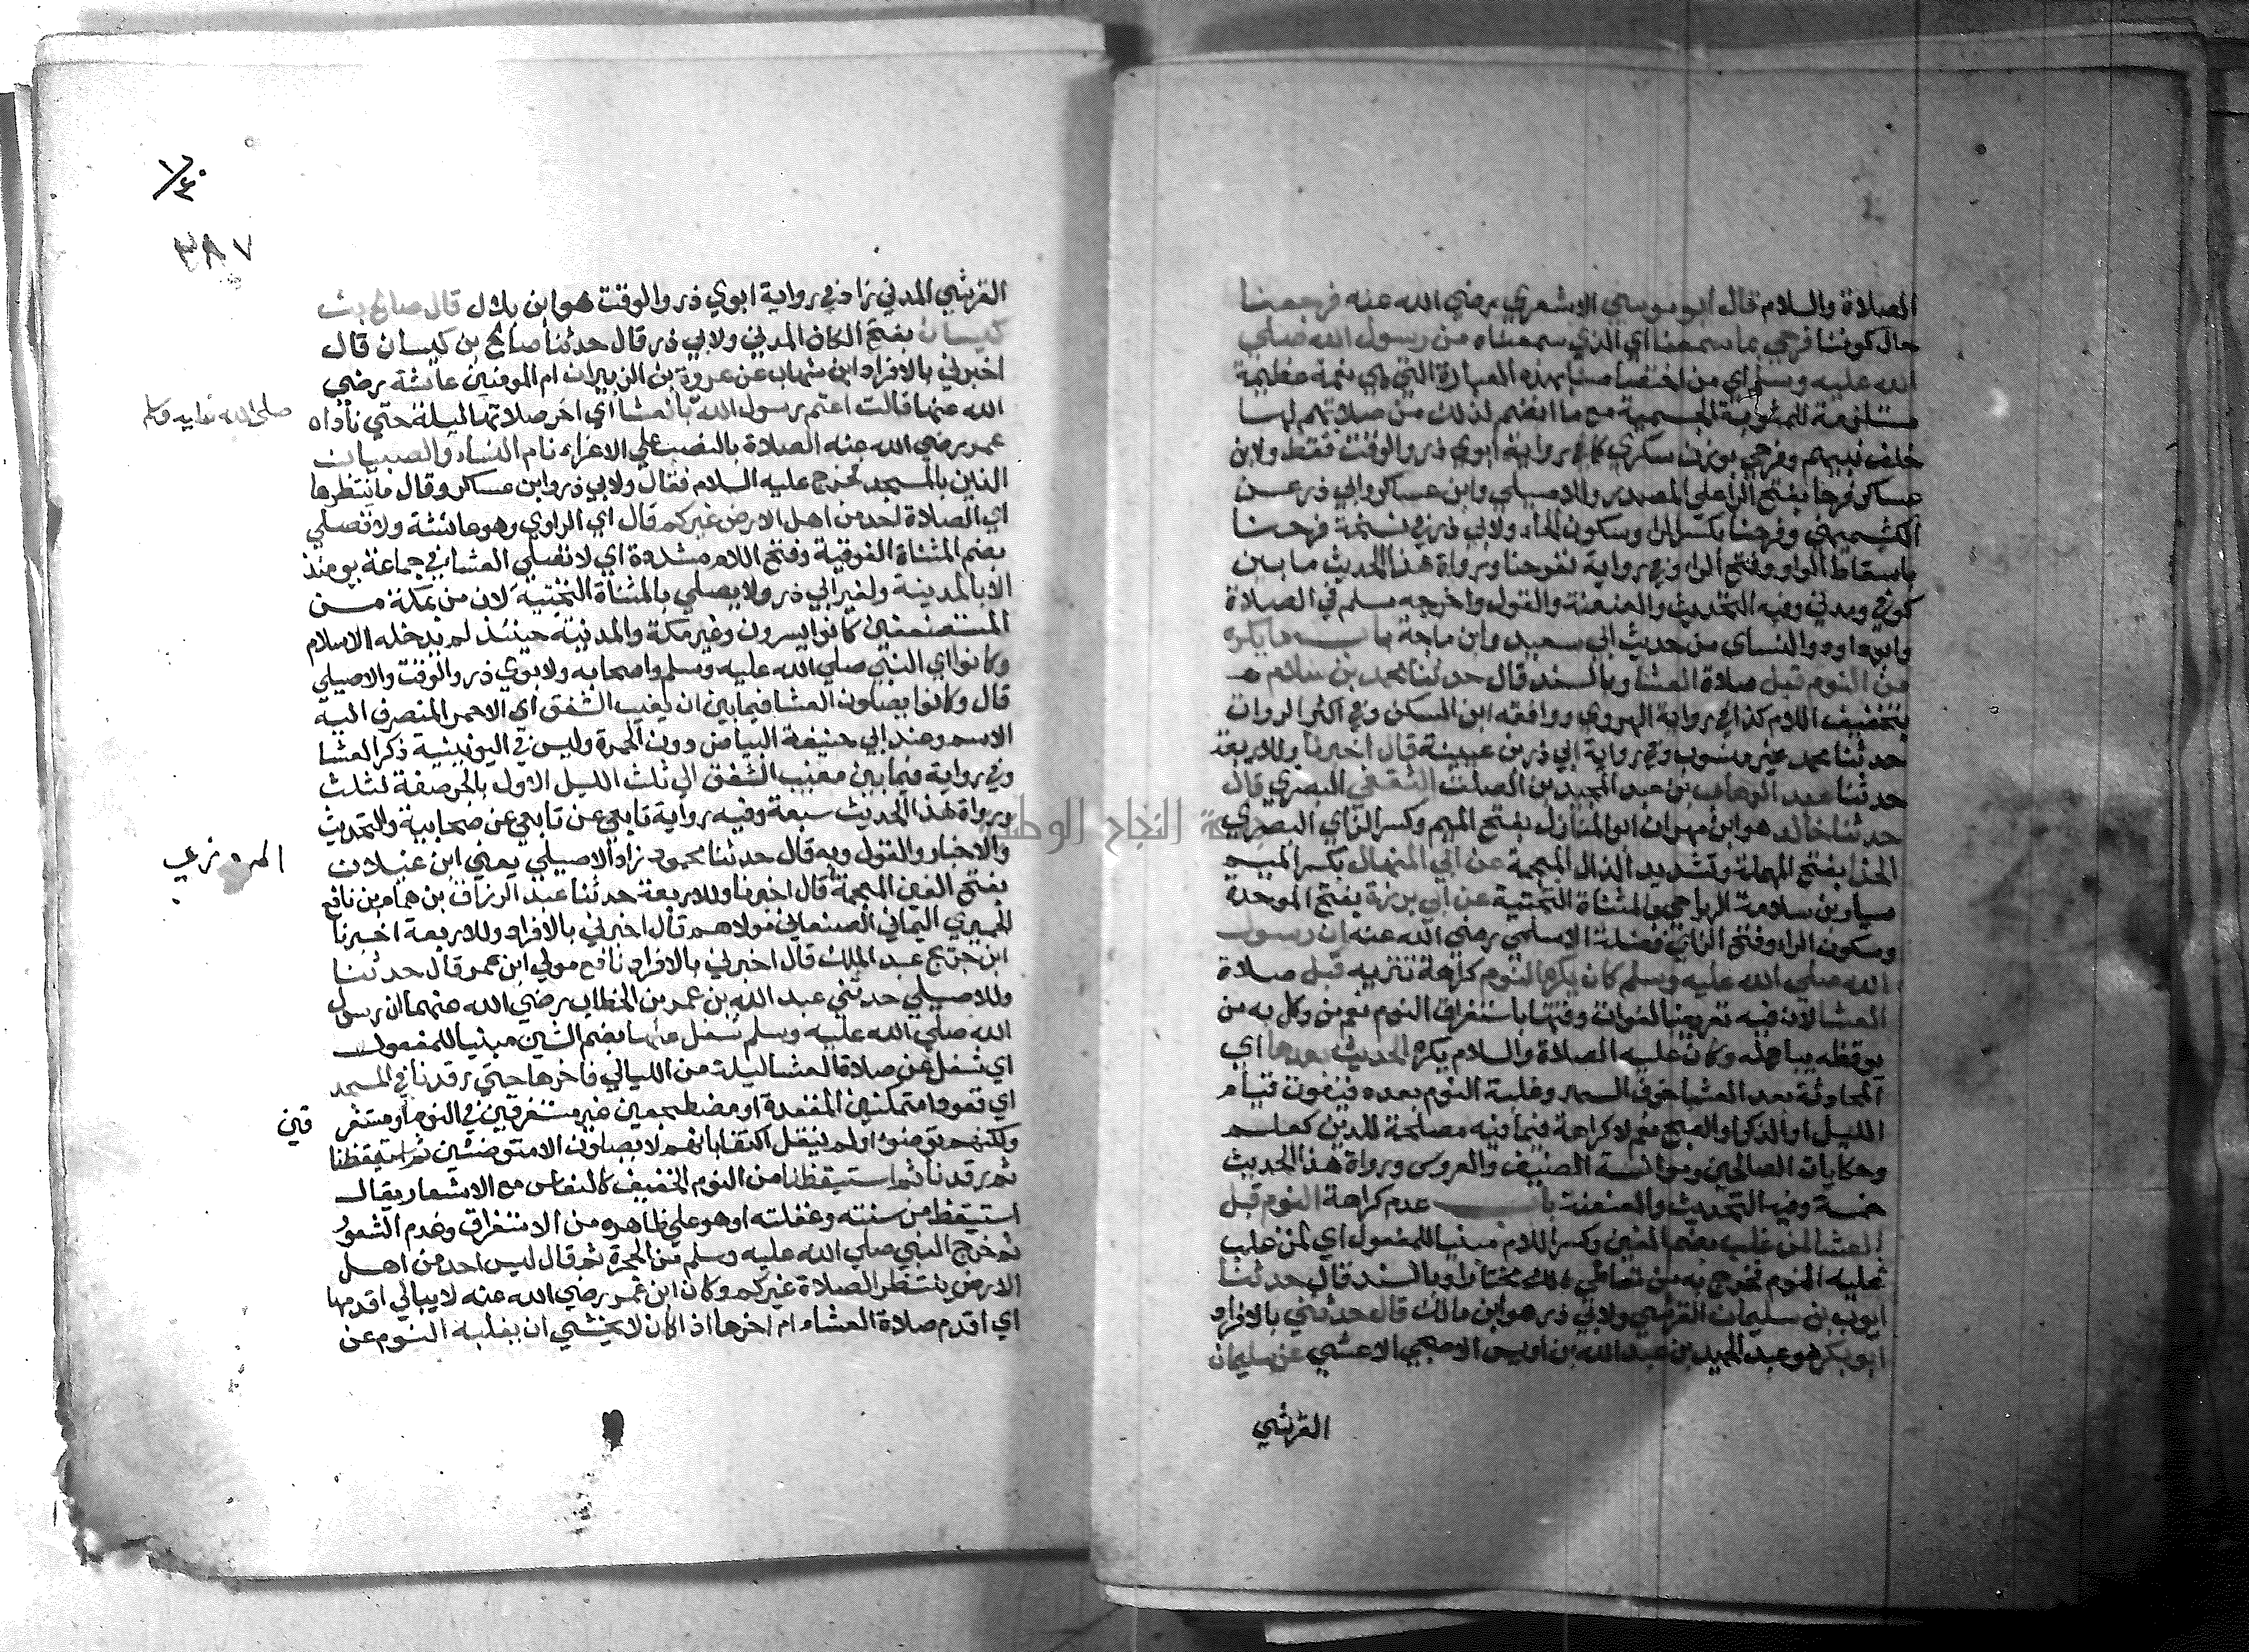 الصلاة والسلام قال ابو موسي الاشعري رضي الله عنه فرجعنا
حال كوننا فرحي بما سمعنا اي الذي سمعناه من رسول الله صلي
الله عليه وسلم اي من اختصاصنا بهذه العبادة التي هي نعمة عظيمة
مستلزمة للمثوبة الجسيمة مع ما انضم لذلك من صلاتهم لها
خلف نبيهم وفرحي بوزن سكري كما في رواية ابوي ذر والوقت فقط ولابن
عساكر فرحا بفتح الرا علي المصدر وللاصيلي وابن عساكر وابي ذر عن
الكشميهني وفرحنا بكسر الرا وسكون الحاء ولابي ذر في نسخة فرحنا
باسقاط الواو وفتح الراء وفي رواية ففرحنا ورواة هذا الحديث ما بين
كوفي ومدني وفيه التحديث والعنعنة والقول واخرجه مسلم في الصلاة
وابو داود والنساي من حديث ابي سعيد وابن ماجة باب ما يكره
من النوم قبل صلاة العشا وبالسند قال حدثنا محمد بن سلام
بتخفيف اللام كذا في رواية الهروي ووافقه ابن السكن وفي اكثر الروات
حدثنا محمد غير منسوب وفي رواية ابي ذر بن عيينة قال اخبرنا وللاربعة
حدثنا عبد الوهاب بن عبد المجيد بن الصلت الثقفي البصري قال
حدثنا خالد هو ابن مهران ابو المنازل بفتح الميم وكسر الزاي البصري
الحذا بفتح المهملة وتشديد الذال المعجمة عن ابي المنهال بكسر الميم
سيار بن سلامة الرياحي بالمثناة التحتية عن ابي برزة بفتح الموحدة
وسكون الراء وفتح الزاي فضلة الاسلمي رضي الله عنه ان رسول
الله صلي الله عليه وسلم كان يكره النوم كراهة تنزيه قبل صلاة
العشا لان فيه تعريضا لفوات وقتها باستغراق النوم نعم من وكل به من
يوقظه يباح له وكان عليه الصلاة والسلام يكره الحديث بعدها اي
المحادثة بعد العشا خوف السهر وغلبة النوم بعده فيفوت قيام
الليل او الذكر او الصبح نعم لا كراهة فيما فيه مصلحة للدين كعلم
وحكايات الصالحين وموانسة الضيف والعروس ورواة هذا الحديث
خمسة وفيه التحديث والعنعنة باب عدم كراهة النوم قبل
العشا لمن غلب بضم الغين وكسر اللام مبنيا للمفعول اي لمن غلب
عليه النوم فخرج به من تعاطي ذلك مختارا وبالسند قال حدثنا
ايوب بن سليمان القرشي ولابي ذر هو ابن مالك قال حدثني بالافراد
ابو بكر هو عبد الحميد بن عبد الله بن اويس الاصبحي الاعشي عن سليمان
القرشي
٣٨٧
القرشي المدني زاد في رواية ابوي ذر والوقت هو ابن بلال قال صالح بن
كيسان بفتح الكاف المدني ولابي ذر قال حدثنا صالح بن كيسان قال
اخبرني بالافراد ابن شهاب عن عروة بن الزبير ان ام المومنين عائشة رضي
الله عنها قالت اعتم رسول الله بالعشا اي اخر صلاتها ليلة حتي ناداه
صلي الله عليه وسلم
عمر رضي الله عنه الصلاة بالنصب علي الاغراء نام النساء والصبيان
الذين بالمسجد فخرج عليه السلام فقال ولابي ذر وابن عساكر وقال ما ينتظرها
اي الصلاة احد من اهل الارض غيركم قال اي الراوي وهو عائشة ولا تصلي
بضم المثناة الفوقية وفتح اللام مشددة اي لا تصلي العشا في جماعة يومئذ
الا بالمدينة ولغير ابي ذر ولا يصلي بالمثناة التحتية لان من بمكة من
المستضعفين كانوا يسرون وغير مكة والمدنية حينئذ لم يدخله الاسلام
وكانوا اي النبي صلي الله عليه وسلم واصحابه ولابوي ذر والوقت والاصيلي
قال وكانوا يصلون العشا فيما بين ان يغيب الشفق اي الاحمر المنصرف اليه
الاسم وعند ابي حنيفة البياض دون الحمرة وليس في اليونينية ذكر العشا
وفي رواية فيما بين مغيب الشفق الي ثلث الليل الاول بالجر صفة لثلث
ورواة هذا الحديث سبعة وفيه رواية تابعي عن تابعي عن صحابية والتحديث
والاخبار والقول وبه قال حدثنا محمود زاد الاصيلي يعني ابن غيلان
بفتح الغين المعجمة قال اخبرنا وللاربعة حدثنا عبد الرزاق بن همام بن نافع
الحميري اليماني الصنعاني مولاهم قال اخبرني بالافراد وللاربعة اخبرنا
ابن جريج عبد الملك قال اخبرني بالافراد نافع مولي ابن عمر قال حدثنا
وللاصيلي حدثني عبد الله بن عمر بن الخطاب رضي الله عنهما ان رسول
الله صلي الله عليه وسلم شغل عنها بضم الشين مبنيا للمفعول
اي شغل عن صلاة العشا ليلة من الليالي فاخرها حتي رقدنا في المسجد
اي قعودا متمكنين المقعدة او مضطجعين غير مستغرقين في النوم او مستغر
قين
ولكنهم توضؤا ولم ينقل اكتفا بانهم لا يصلون الا متوضئين ثم استيقظنا
ثم رقدنا ثم استيقظنا من النوم الخفيف كالنعاس مع الاشعار يقال
استيقظ من سنته وغفلته او هو علي ظاهره من الاستغراق وعدم الشعور
ثم خرج النبي صلي الله عليه وسلم من الحجرة ثم قال ليس احد من اهل
الارض ينتظر الصلاة غيركم وكان ابن عمر رضي الله عنه لا يبالي اقدمها
اي اقدم صلاة العشاء ام اخرها اذا كان لا يخشي ان يغلبه النوم عن